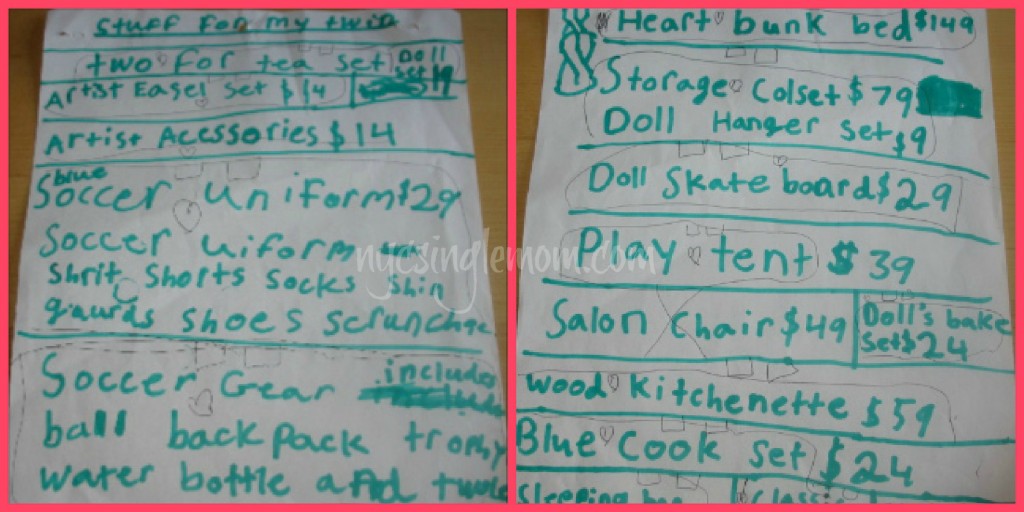 stuff for my twin
two for tea set Doll set 19
Artist Easel set $14
Artist Acessories $14
blue
Soccer Uniform $29
Soccer Uiform
Shrit Shorts Socks Shin
gaurds Shoes
Soccer Gear includes
ball back pack trophy
water bottle and
Heart bunk bed $149
Storage Colset $79
Doll Hanger set $9
Doll Skate board $29
Play tent $39
Salon Chair $49
Doll's bake set $24
wood Kitchenette $59
Blue Cook set $24
Sleeping
nycsinglemom.com